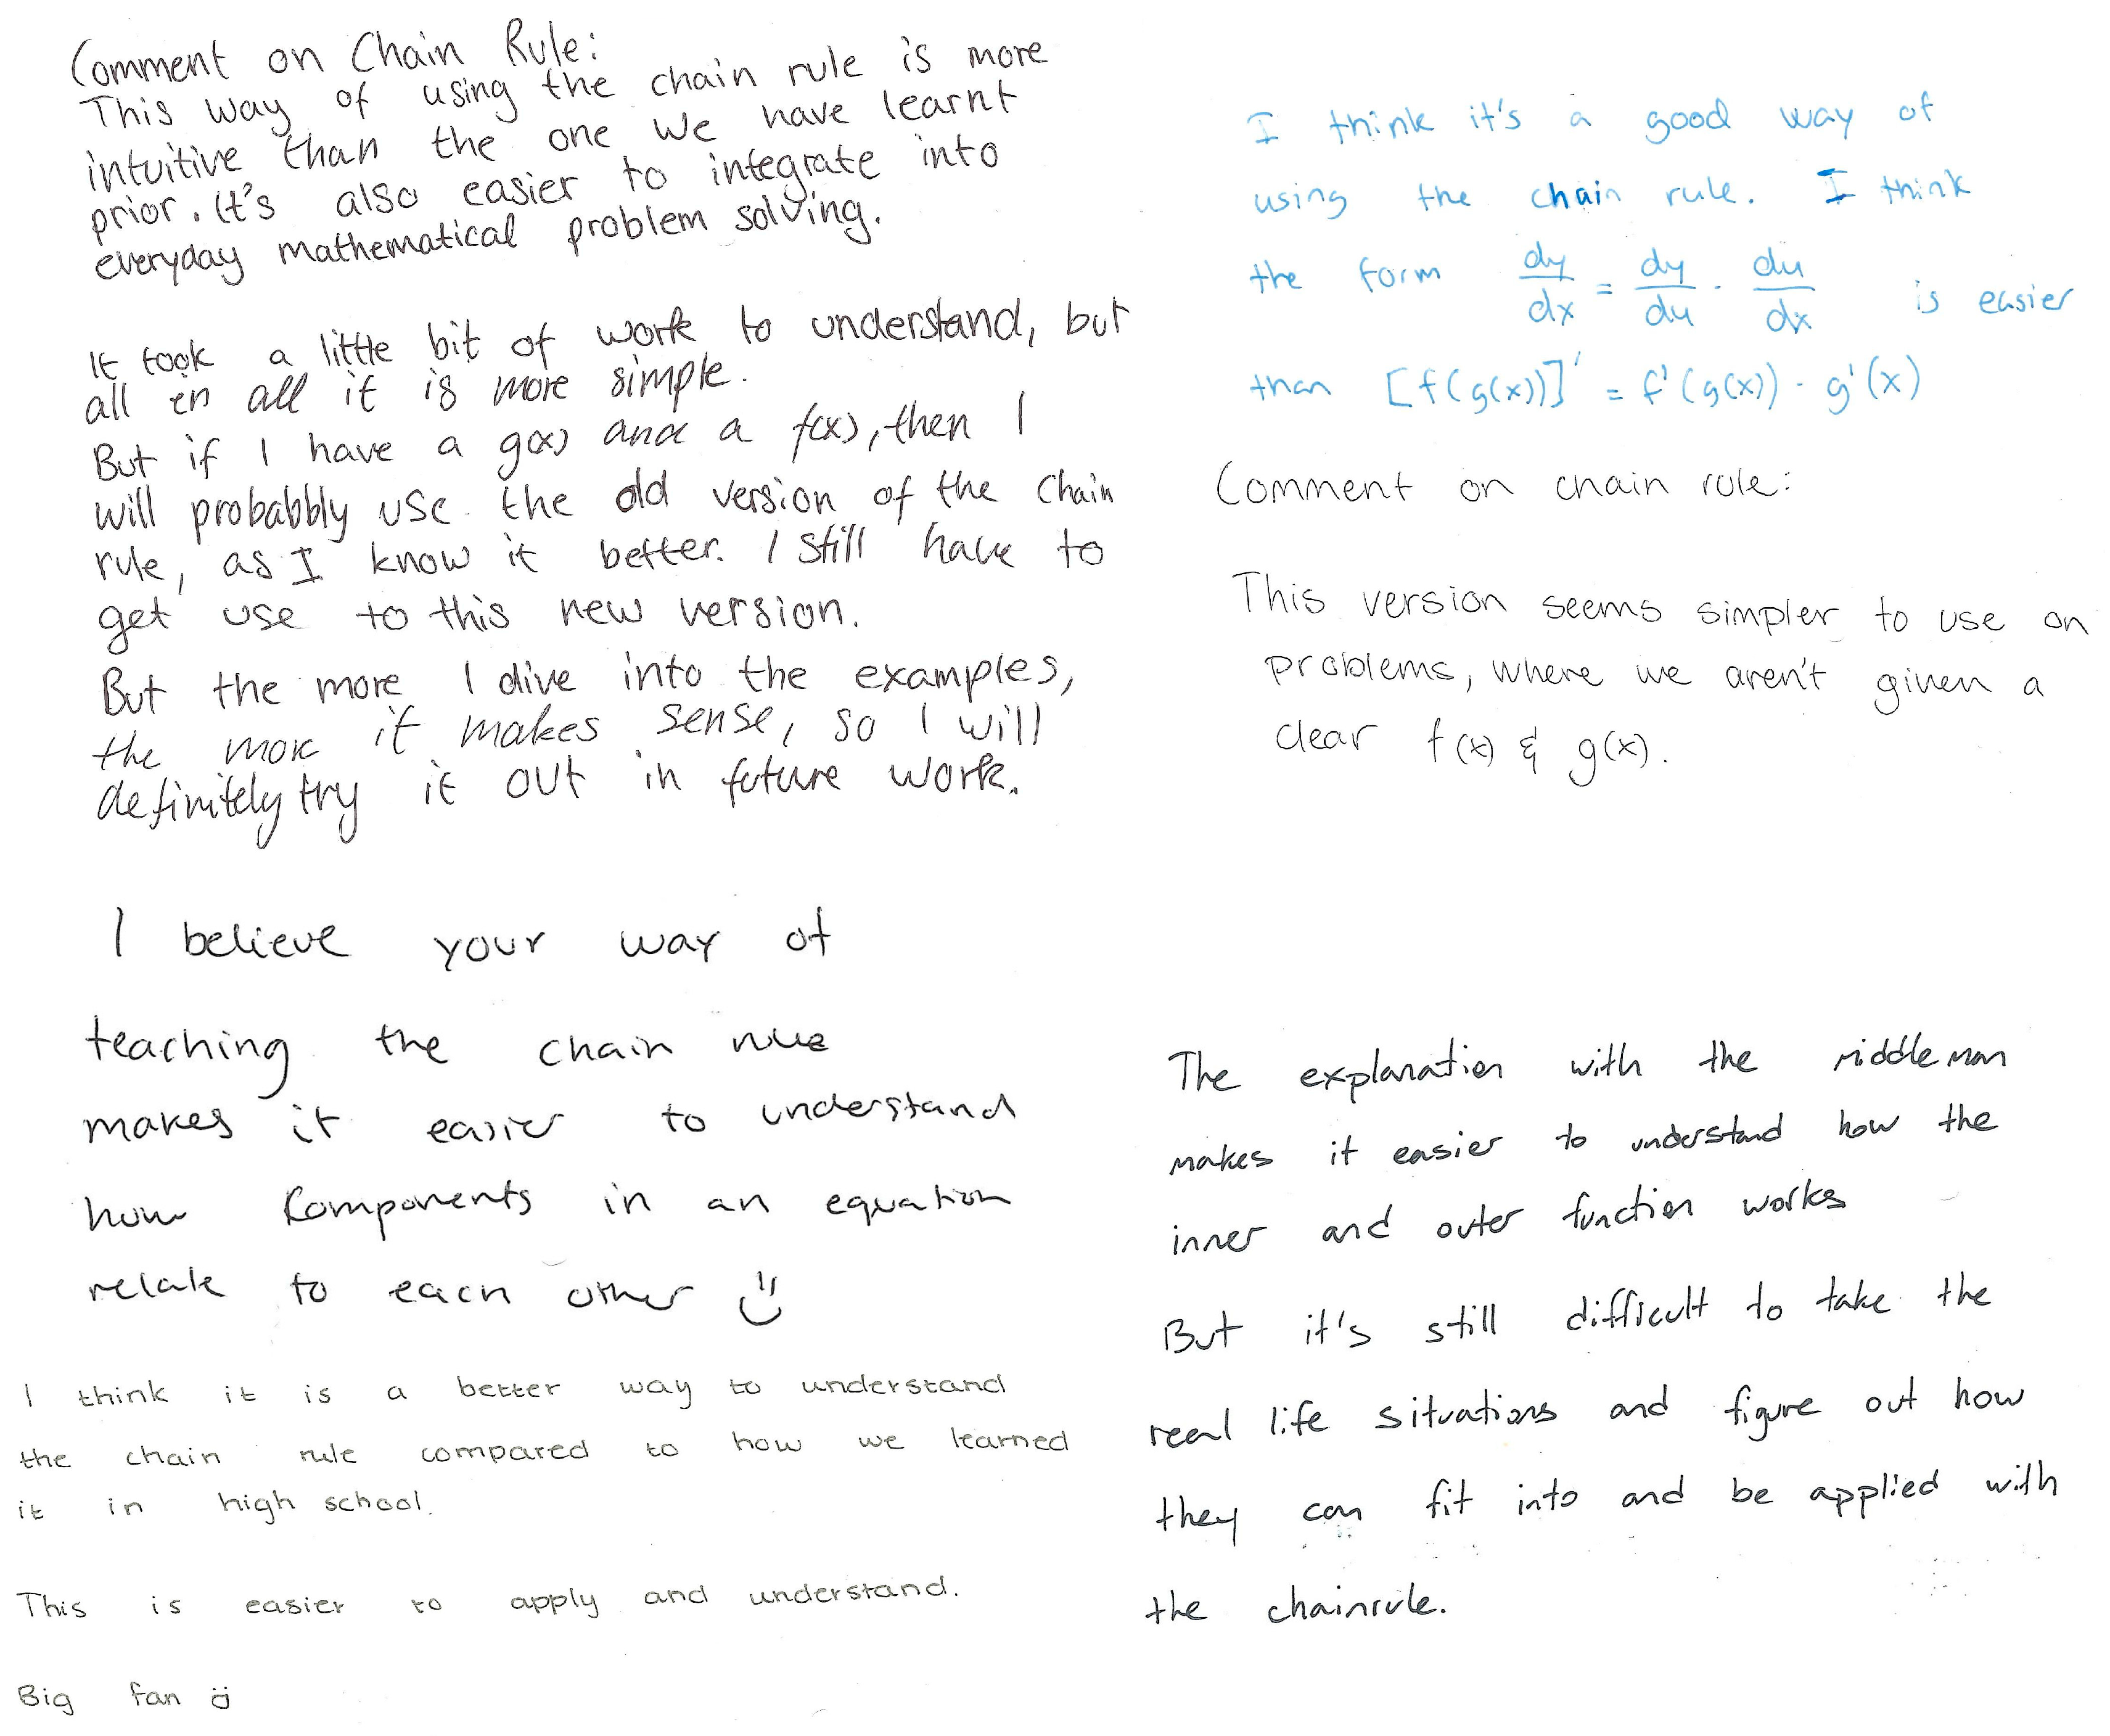 Comment on Chain Rule:
This way of using the chain rule is more
intuitive than the one we have learnt
prior. It's also easier to integrate into
everyday mathematical problem solving.
It took a little bit of work to understand, but
all in all it is more simple.
But if I have a g(x) and a f(x), then I
will probabbly use the old version of the chain
rule, as I know it better. I still have to
get use to this new version.
But the more I dive into the examples,
the more it makes sense, so I will
definitely try it out in future work.
I think it's a good way of
using the chain rule. I think
the form dy/dx = dy/du · du/dx is easier
than [f(g(x))]' = f'(g(x)) · g'(x)
Comment on chain rule:
This version seems simpler to use on
problems, where we aren't given a
clear f(x) & g(x).
I believe your way of
teaching the chain rule
makes it easier to understand
how components in an equation
relate to each other :)
I think it is a better way to understand
the chain rule compared to how we learned
it in high school.
This is easier to apply and understand.
Big fan :)
The explanation with the middleman
makes it easier to understand how the
inner and outer function works
But it's still difficult to take the
real life situations and figure out how
they can fit into and be applied with
the chainrule.